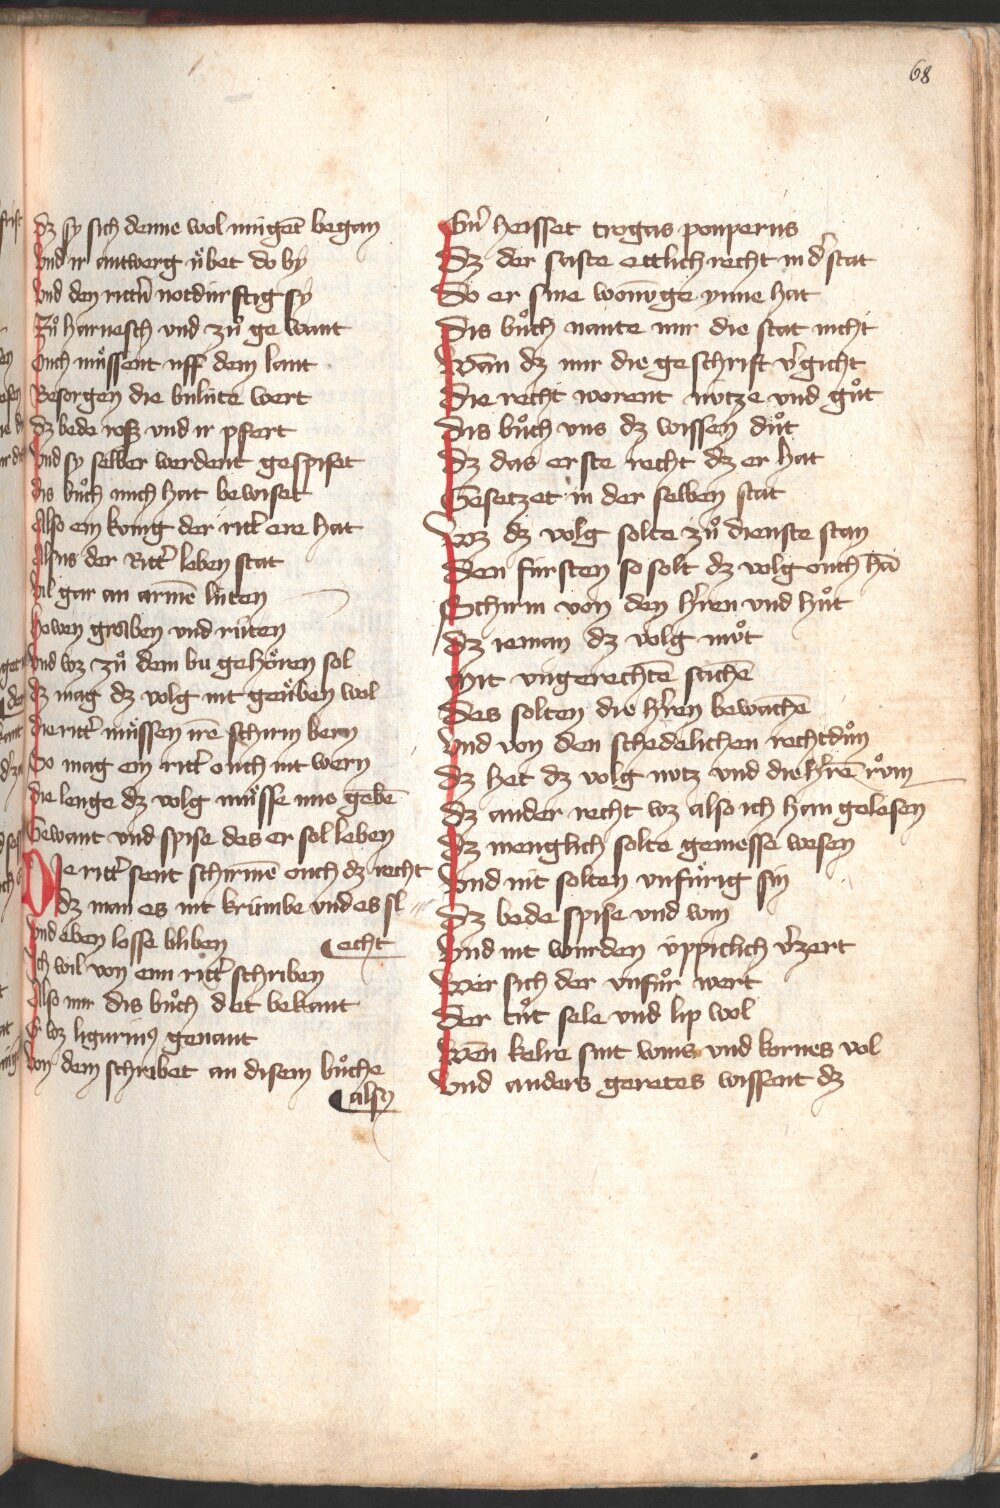 68
dz sy sich denne wol mùgēt began
vnd ir antwerg ùbet do by
vnd den rittˀn notdùrftig sy
Zů harnesch vnd zů ge want
Ouch mùssent uff dem lant
Besorgen die bulùte wert
dz bede roß vnd ir pfert
vnd sy selber werdent gespiset
dis bůch mich hat bewiset
Also ein konig der rittˀ ere hat
Alsus der Rittˀ leben stat
vil gar an armē lùten
howen graben vnd rùten
vnd wz zů dem bu gehören sol
dz mag dz volg nit geùben wol
die rittˀ mùssen irē schirm bern
So mag ein rittˀ ouch nit wern
die lenge dz volg mùsse ime gebē
Gewant vnd spise des er sol leben
Die rittˀ sent schirmē ouch dz recht
dz man es nit krùmbe vnd es sl
echt
vnd eben losse bliben
Ich wil von eim rittˀ schriben
Also mir dis bůch det bekant
Er wz ligurinꝰ genant
von dem schribet an disem bůche
also
Einˀ heisset trogas ponperus
Dz der saste ettlich recht in dˀ stat
Do er sine wonūge ynne hat
Dis bůch nante mir die stat nicht
Wan dz mir die geschrift vˀgicht
Die recht worent nutze vnd gůt
Dis bůch vns dz wissen důt
Dz das erste recht dz er hat
Gesetzet in der selben stat
Wz dz volg solte zů dienste stan
Den fùrsten so solt dz volg ouch hā
Schirm von den hˀren vnd hůt
Dz ieman dz volg můt
Mit vngerechtē sachē
Des solten die hˀren bewachē
Vnd von den schedelichen rechtdům
Dz het dz volg nutz vnd die hˀrē rům
Dz ander recht wz also ich han gelesen
Dz menglich solte gemesse wesen
Vnd nit solten vnfùrig sin
Dz bede spise vnd win
Vnd nit wurden ùppiclich vˀzert
Wer sich der vnfůr wert
Der tůt sele vnd lip wol
Wēn kelre sint wins vnd kornes vol
Vnd anders geretes wissent dz